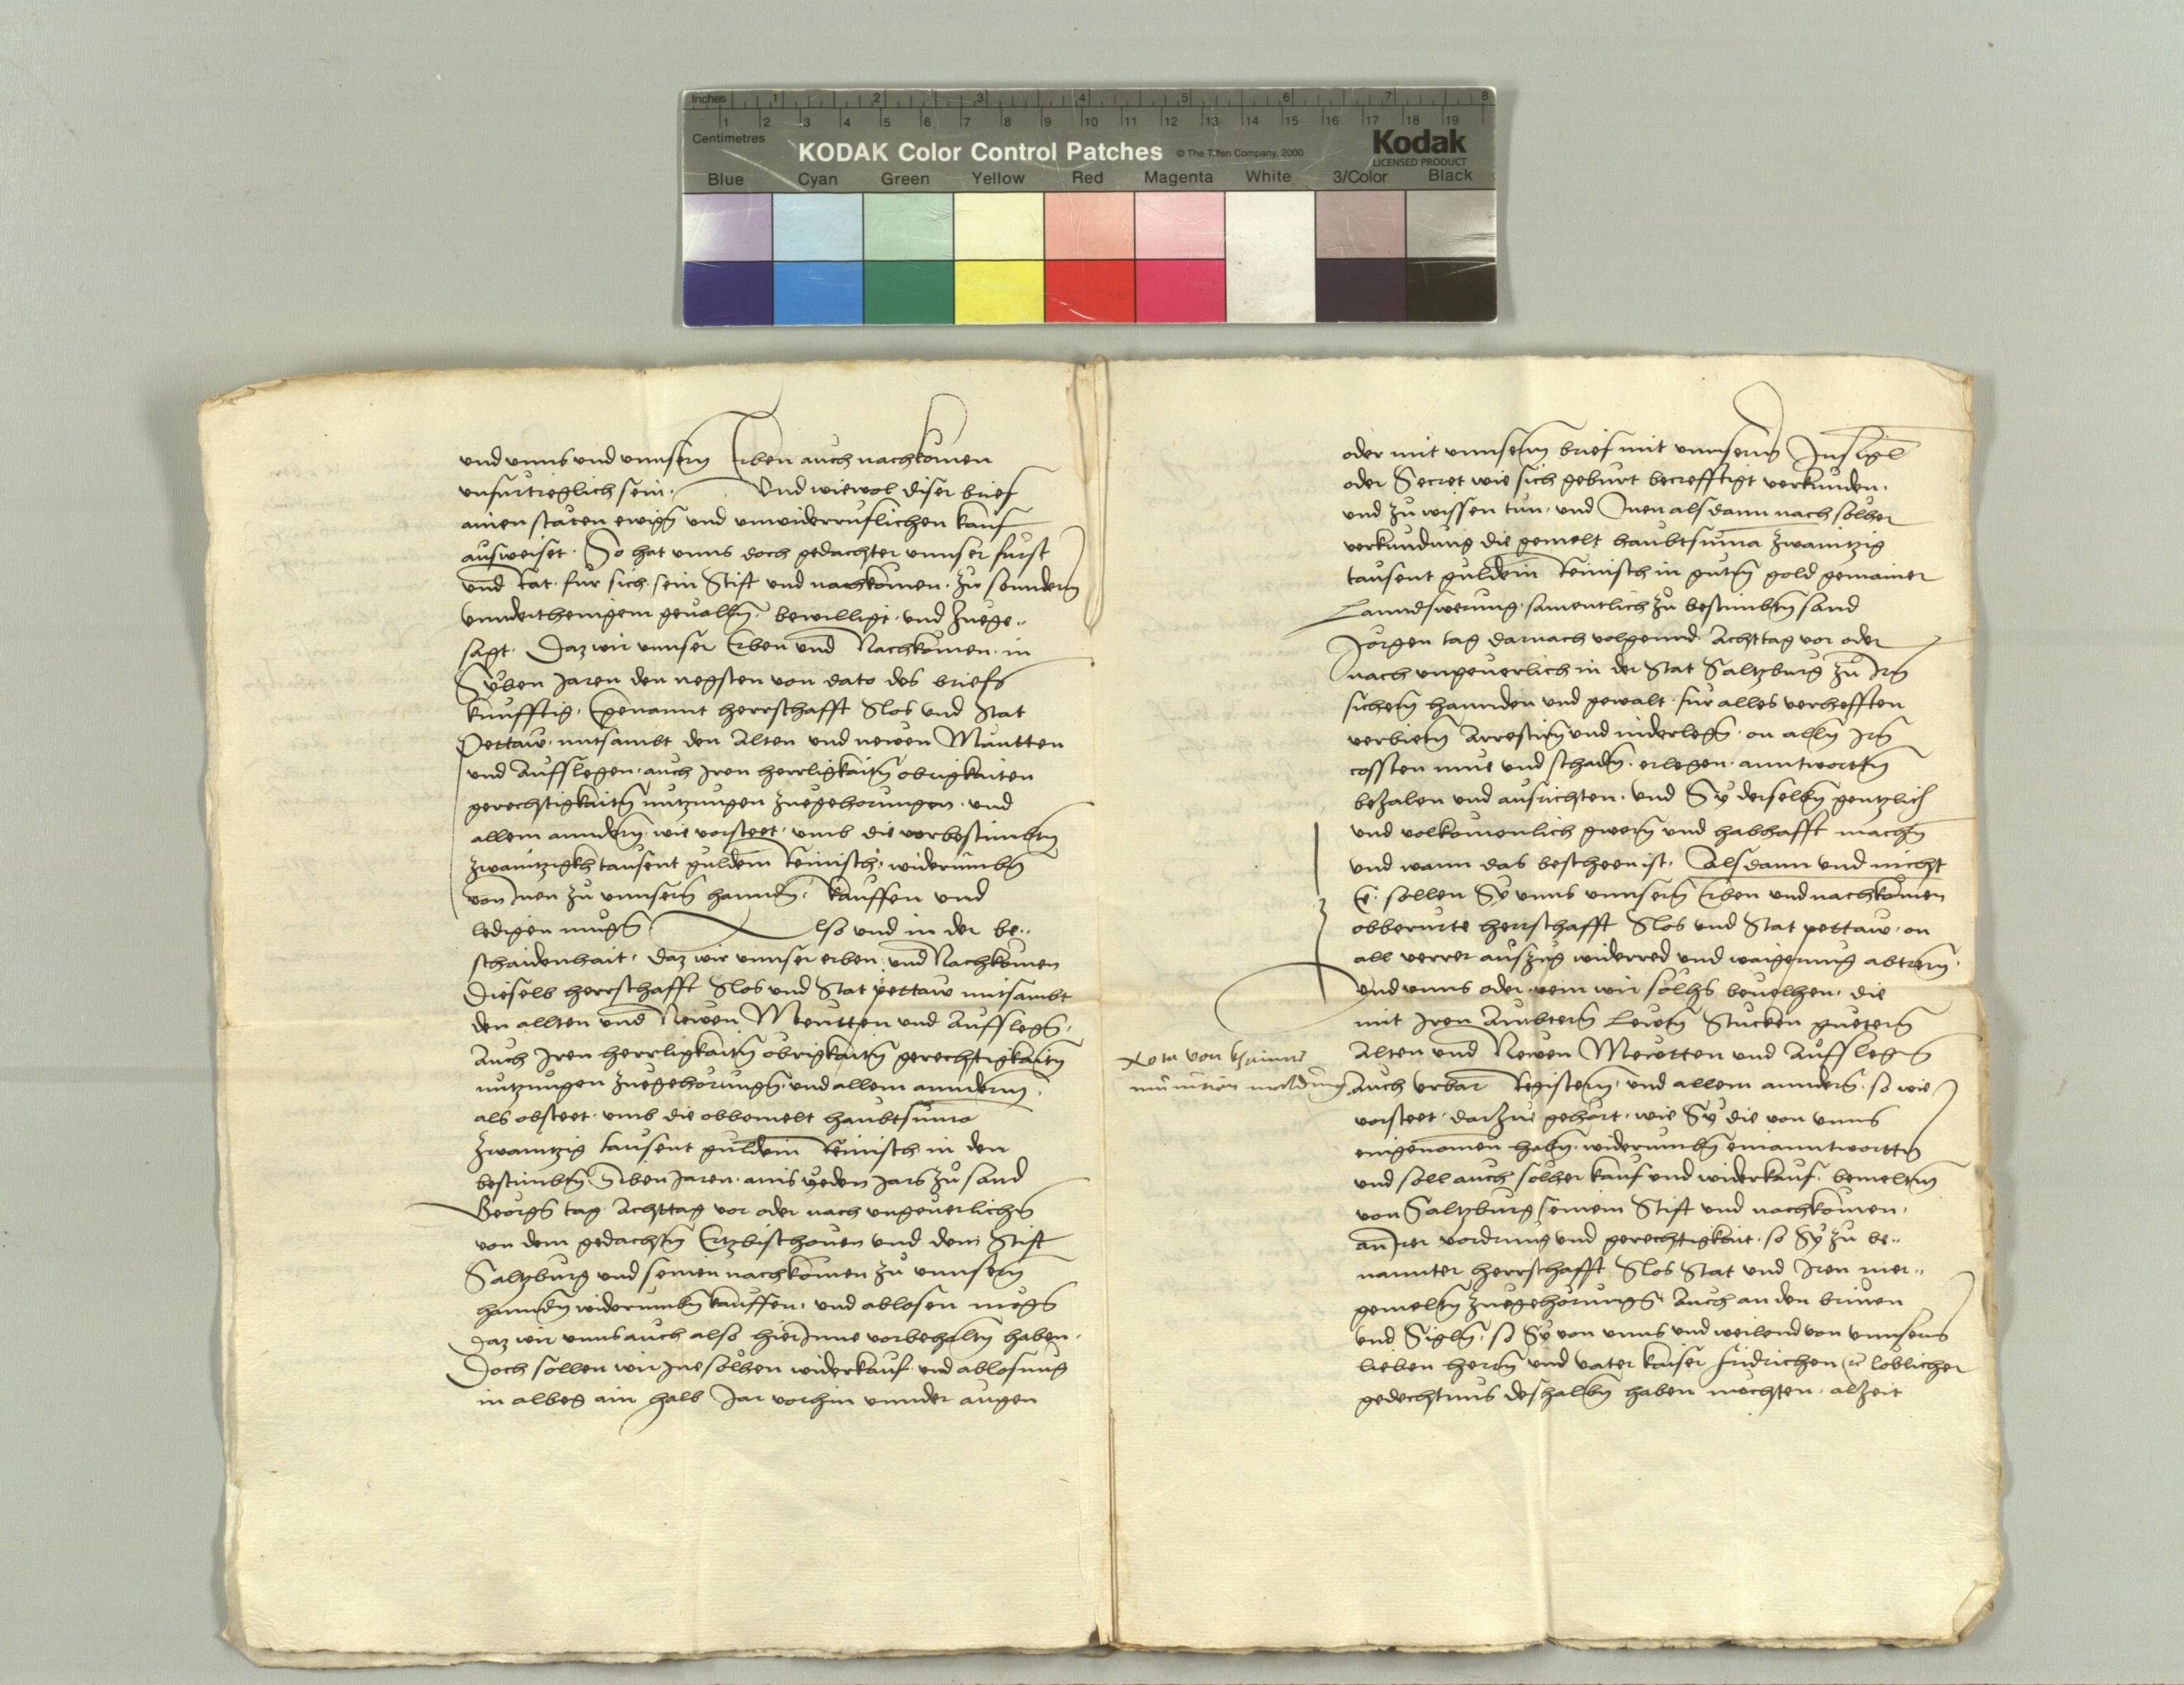 Inches 1 2 3 4 5 6 7 8
Centimetres 1 2 3 4 5 6 7 8 9 10 11 12 13 14 15 16 17 18 19
KODAK Color Control Patches © The Tiffen Company, 2000
Kodak
LICENSED PRODUCT
Blue Cyan Green Yellow Red Magenta White 3/Color Black
und unns und unnsern Erben auch nachkomen
unfurtreglich sein. Und wiewol diser brief
ainen stäten ewigen und unwiderruflichen kauf
ausweiset. So hat unns doch gedachter unnser furst
und Rat. fur sich sein Stift und nachkomen. zu sonndern
unnderthenigem geuallen. bewilligt. und zuege..
sagt. Daz wir unnser Erben und Nachkomen. in
Syben Jaren den negsten von dato des briefs
kunfftig. Egenannt herrschafft Slos und Stat
Pettaw. mitsambt den Alten und newen Mautten
und Aufslegen. auch Iren herrligkaiten obrigkaiten
gerechtigkaiten nutzungen zuegehorungen. und
allem anndern. wie vorsteet. umb die vorbestimbten
zwaintzigkh tausent guldein Reinisch. widerumben
von Inen zu unnsern hannden. kauffen und
ledigen mugen Also und in der be..
schaidenhait. daz wir unnser erben und Nachkomen
Dieselb herrschafft Slos und Stat pettaw mitsambt
den allten und Newen Meutten und Aufslegen.
Auch Iren herrligkaiten obrigkaiten gerechtigkaiten
nutzungen zuegehorungen. und allem anndern.
als obsteet. umb die obbemelt haubtsuma
zwaintzig tausent guldein Reinisch in den
bestimbten Siben Jaren. ains yeden Jars zu sand
Georgen tag. Achttag vor oder nach ungeuerlichen
von dem gedachten Ertzbischouen und dem Stift
Saltzburg und seinen nachkomen zu unnsern
hannden widerumben kauffen. und ablosen mugen
Daz wir unns auch also hierInne vorbehalten haben.
Doch sollen wir Ine solhen widerkauf und ablosung
in albeg ain halb Jar vorhin unnder augen
oder mit unnserm brief mit unnserm Insigl
oder Secret wie sich geburt becrefftigt verkunden.
und zu wissen tun. und Inen alsdann nach solher
verkundung die gemelt haubtsuma zwaintzig
tausent guldein Reinisch in gutem gold gemainer
Lanndswerung. samentlich zu bestimbten sand
Jorgen tag darnach volgennd. Achttag vor oder
nach ungeuerlich in der Stat Saltzburg zu Iren
sichern hannden und gewalt. fur alles verhefften
verbieten Arrestiren und niderlegen. on allen Iren
cossten mue und schaden. erlegen. anntwortten
bezalen und ausrichten. und Sy derselben gentzlich
und volkomenlich gwern und habhafft machen
und wann das bescheen ist. Alsdann und nicht
E. sollen Sy unns unnsern Erben und nachkomen
obberurte herrschafft Slos und Stat pettaw. on
all verrer auszug widerred und waigerung abtreten.
Und unns oder wem wir solhs beuelhen. die
mit Iren Ambtern Lewten Stucken guetern
Alten und Newen Mewtten und Aufslegen
Auch urbar Registern. und allem anndern. so wie
vorsteet. darzue gehört. wie Sy die von unns
eingenomen haben. widerumben einanntwortten
und soll auch solher kauf und widerkauf. bemelten
von Saltzburg seinem Stift und nachkomen.
an Irer vordrung und gerechtigkait. so Sy zu be..
nannter herrschafft Slos Stat und Iren mer..
gemelten zuegehorungen. Auch an den brieuen
und Siglen. so Sy von unns und weilend von unnserm
lieben herrn und vater kaiser fridrichen rc loblicher
gedechtnus deshalben haben mochten. alzeit
munition meldung